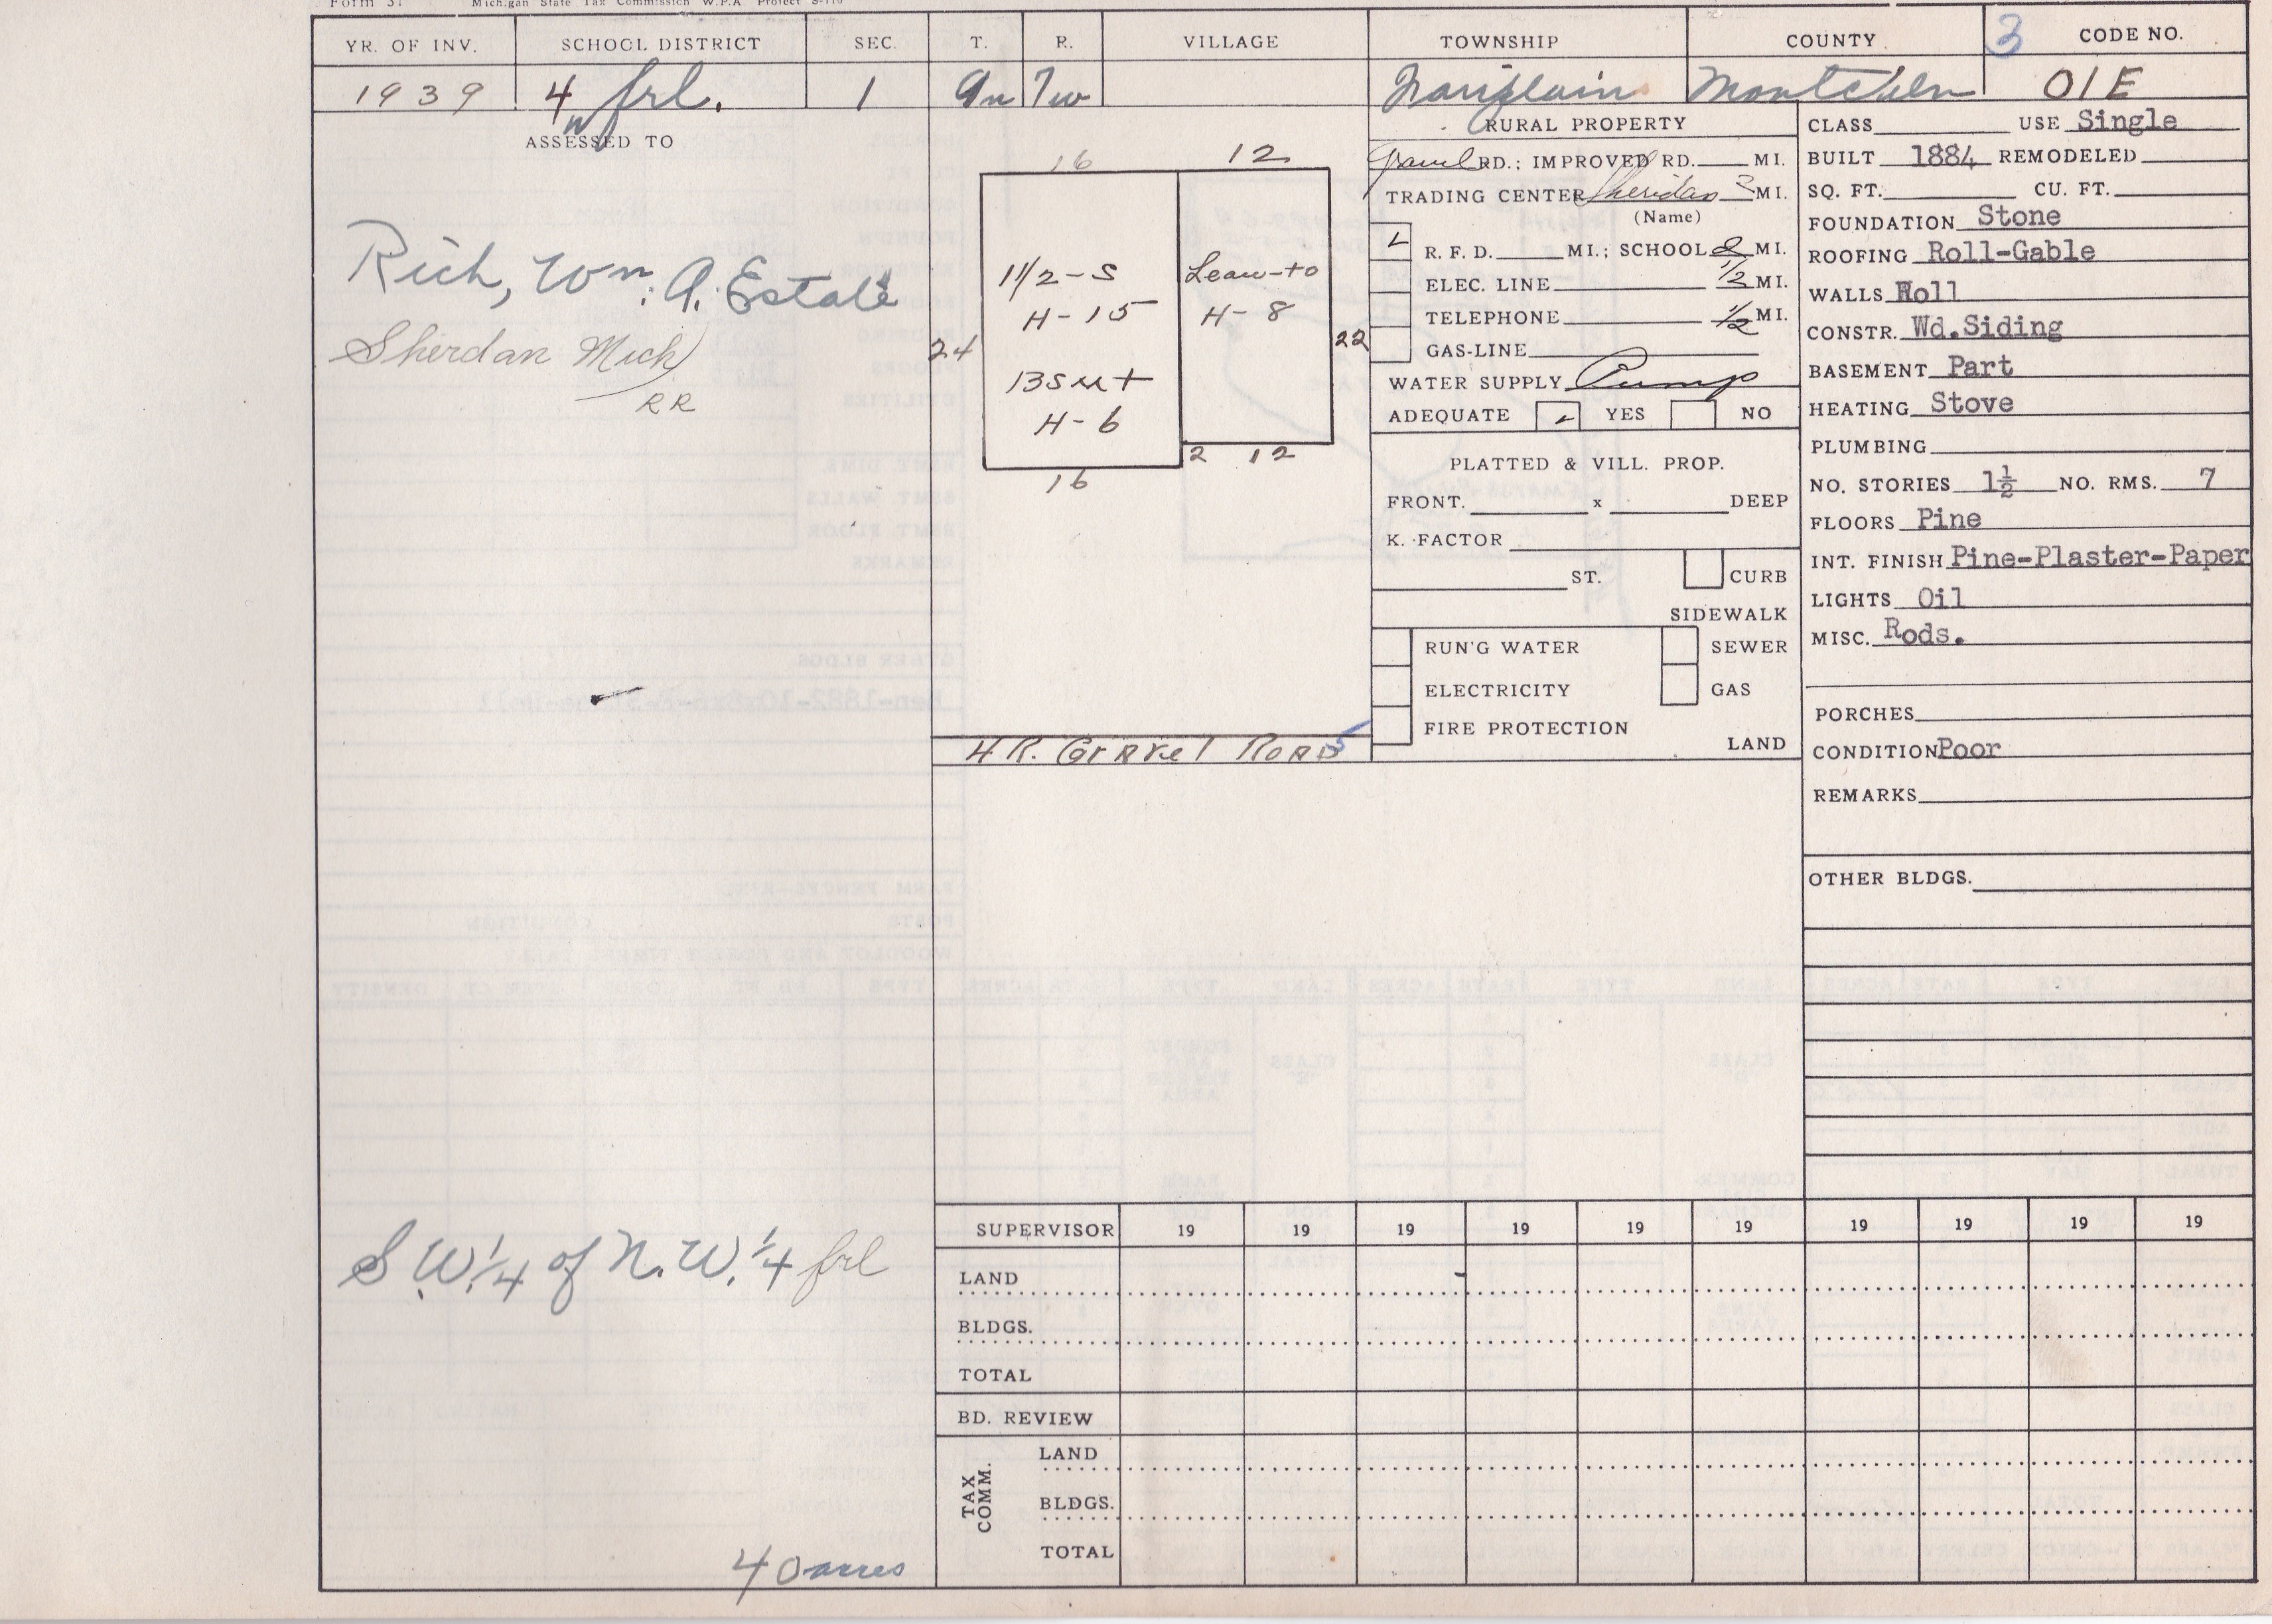 Form 3. Michigan State Tax Commission W.P.A Project S-110
YR. OF INV. SCHOOL DISTRICT SEC. T. R. VILLAGE TOWNSHIP COUNTY 3 CODE NO.
1939 4 frl. 1 9n 7w Fairplain Montcalm 01E
ASSESSED TO
Rich, Wm. A. Estate
Sherdan Mich
RR
S.W.1/4 of N.W.1/4 frl
40 acres
16 12
1 1/2-S Lean-to
H-15 H-8
24 22
BSMt
H-6
2 12
16
4 R. Gravel Road 5
RURAL PROPERTY
Gravel RD.; IMPROVED RD. MI.
TRADING CENTER Sheridan 3 MI.
(Name)
R. F. D. MI.; SCHOOL 2 MI.
ELEC. LINE 1/2 MI.
TELEPHONE 1/2 MI.
GAS-LINE
WATER SUPPLY Pump
ADEQUATE YES NO
PLATTED & VILL. PROP.
FRONT. x DEEP
K. FACTOR
ST. CURB
SIDEWALK
RUN'G WATER SEWER
ELECTRICITY GAS
FIRE PROTECTION
LAND
CLASS USE Single
BUILT 1884 REMODELED
SQ. FT. CU. FT.
FOUNDATION Stone
ROOFING Roll-Gable
WALLS Roll
CONSTR. Wd.Siding
BASEMENT Part
HEATING Stove
PLUMBING
NO. STORIES 1½ NO. RMS. 7
FLOORS Pine
INT. FINISH Pine-Plaster-Paper
LIGHTS Oil
MISC. Rods.
PORCHES
CONDITION Poor
REMARKS
OTHER BLDGS.
SUPERVISOR 19 19 19 19 19 19 19 19 19 19
LAND
BLDGS.
TOTAL
BD. REVIEW
TAX COMM.
LAND
BLDGS.
TOTAL